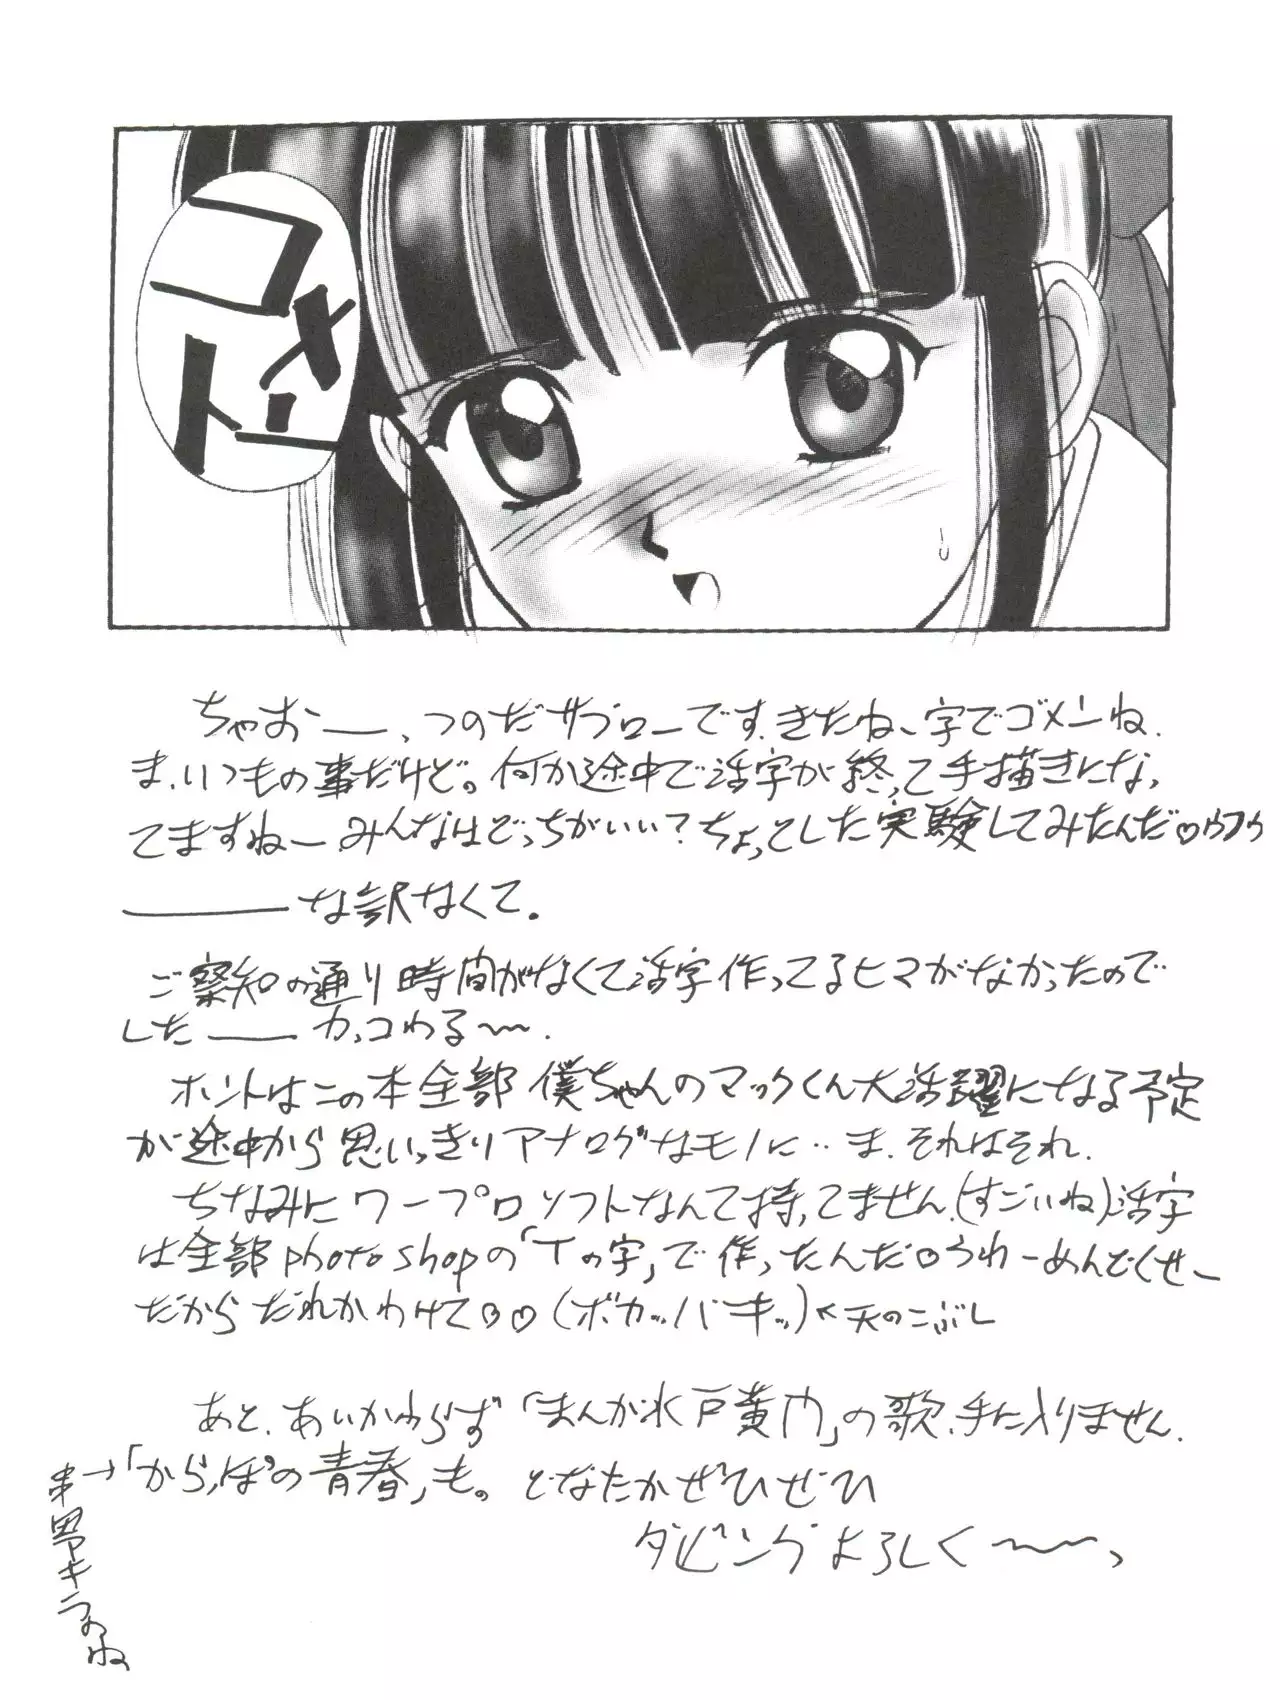 コメント
ちゃおー、つのだサブローです。きたねー字でゴメンね。
ま、いつもの事だけど。何か途中で活字が終って手描きにな
てますねー。みんなはどっちがいい？ちょっとした実験してみたんだ♡ウフゥ
――な訳なくて。
ご察知の通り時間がなくて活字作ってるヒマがなかったので
した――カッコわる～。
ホントはこの本全部僕ちゃんのマックくん大活躍になる予定
が途中から思いっきりアナログなモノに‥ま、それはそれ。
ちなみにワープロソフトなんて持ってません。(すごいね)活字
は全部photoshopの「Tの字」で作ったんだ♡うわーめんどくせー
だからだれかわけて♡♡(ボカッバキッ)←天のこぶし
あと、あいかわらず「まんが水戸黄門」の歌、手に入りません。
「からっぽの青春」も。どなたかぜひぜひ
ダビングよろしく～、
串→
男アキラのね